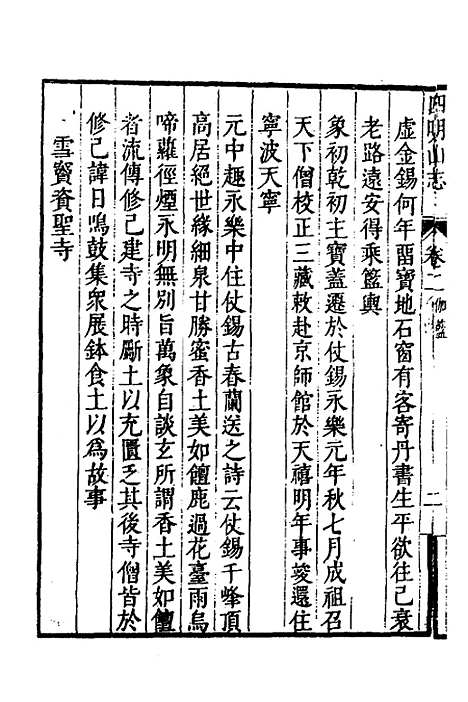 四明山志
卷二
伽藍
二
虛金錫何年畱寶地石窗有客寄丹書生平欲往已衰
老路遠安得乘籃輿
象初乾初主寶蓋遷於仗錫永樂元年秋七月成祖召
天下僧校正三藏敕赴京師館於天禧明年事竣還住
寧波天寧
元中趣永樂中住仗錫古春蘭送之詩云仗錫千峰頂
高居絕世緣細泉甘勝蜜香土美如饘鹿過花臺雨烏
啼蘿徑煙永明無別旨萬象自談玄所謂香土美如饘
者流傳修己建寺之時斸土以充匱乏其後寺僧皆於
修己諱日鳴鼓集衆展鉢食土以爲故事
雪竇資聖寺